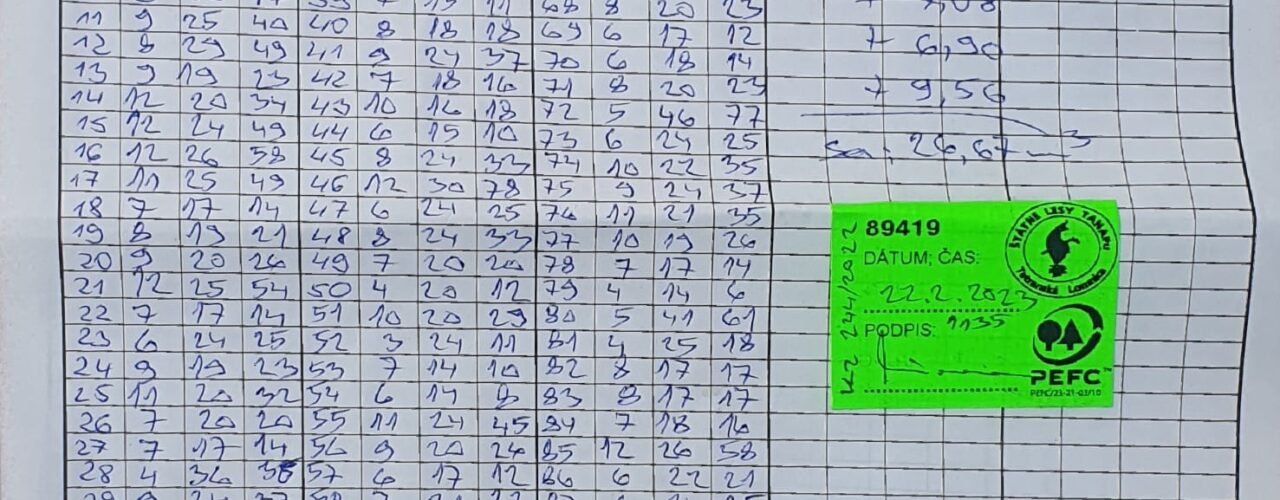 11 9 25 40 40 8 18 18 69 6 17 12
12 8 29 49 41 9 24 37 70 6 18 14
13 9 19 23 42 7 18 16 71 8 20 23
14 12 20 34 43 10 16 18 72 5 46 77
15 12 24 49 44 6 15 10 73 6 24 25
16 12 26 58 45 8 24 33 74 10 22 35
17 11 25 49 46 12 30 78 75 9 24 37
18 7 17 14 47 6 24 25 76 11 21 35
19 8 19 21 48 8 24 33 77 10 19 26
20 9 20 26 49 7 20 20 78 7 17 14
21 12 25 54 50 4 20 12 79 4 14 6
22 7 17 14 51 10 20 29 80 5 41 61
23 6 24 25 52 3 24 11 81 4 25 18
24 9 19 23 53 7 14 10 82 8 17 17
25 11 20 32 54 6 14 8 83 8 17 17
26 7 20 20 55 11 24 45 84 7 18 16
27 7 17 14 56 9 20 26 85 12 26 58
28 4 36 57 6 17 12 86 6 22 21
7 6,90
7 9,56
Sa: 26,67 m3
89419
DÁTUM; ČAS:
22.2.2023
PODPIS: 1135
ŠTÁTNE LESY TANAPU
Tatranská Lomnica
PEFC™
PEFC/23-21-03/10